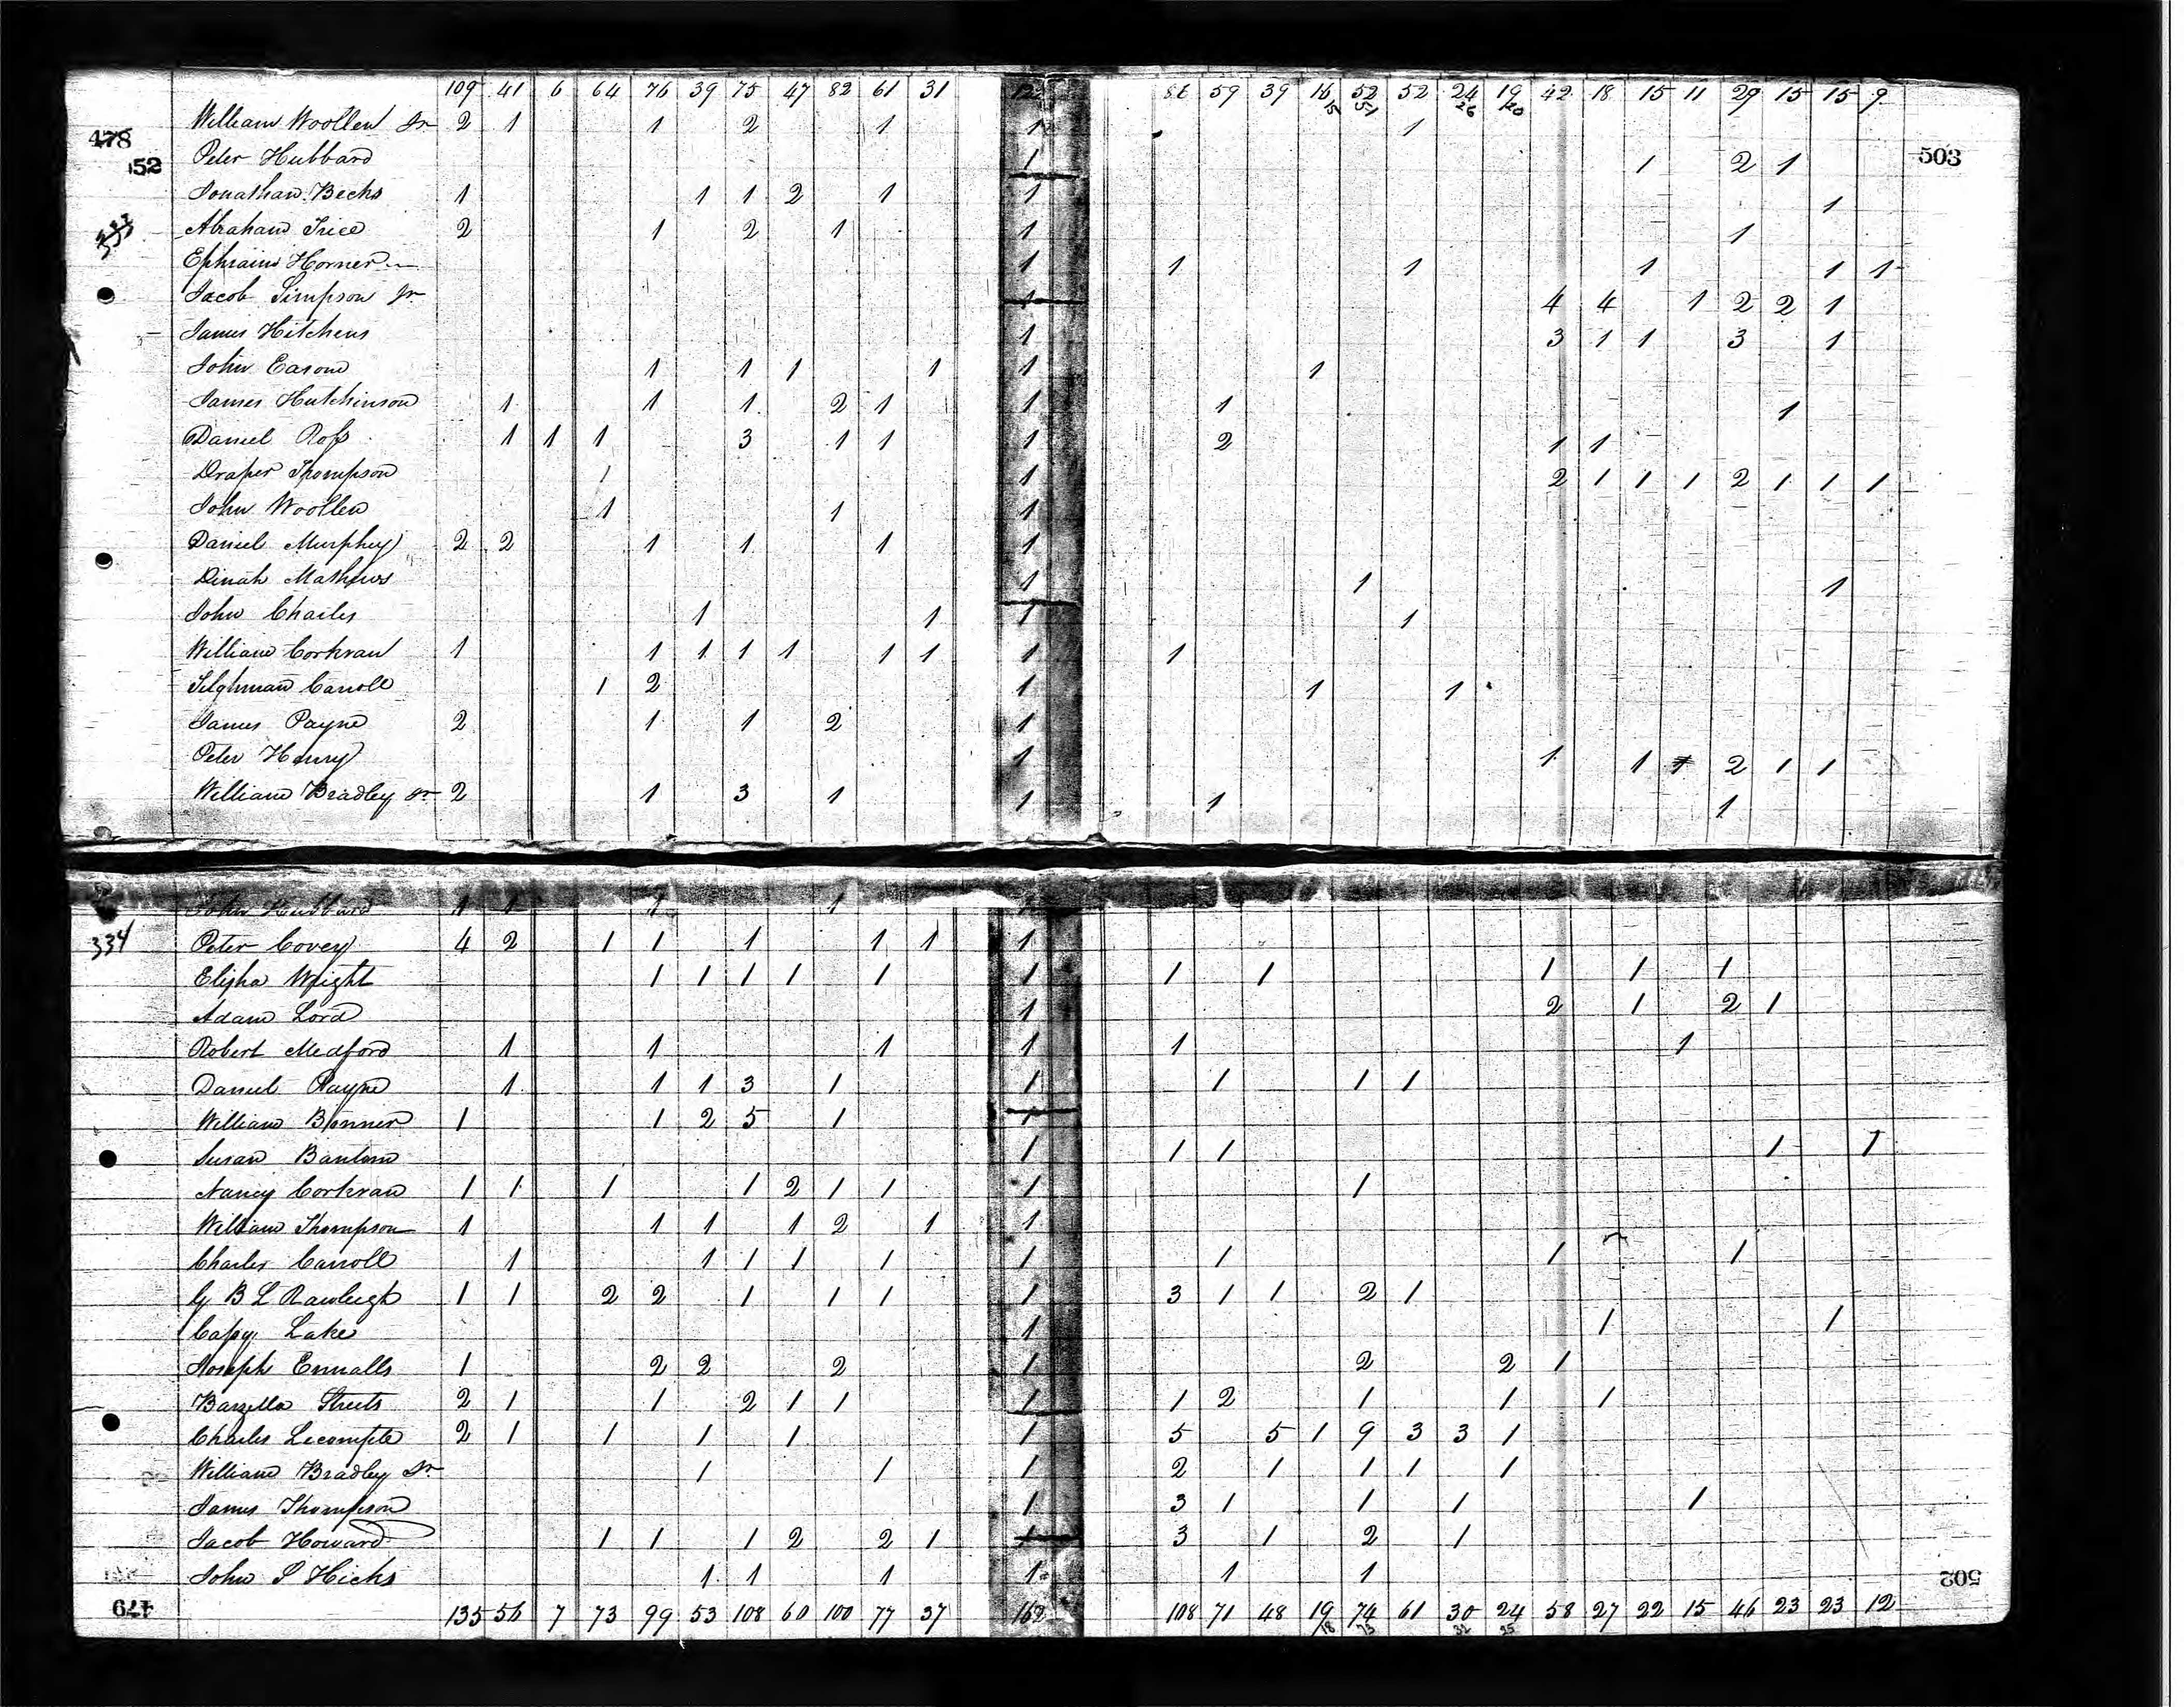 109 41 6 64 76 39 75 47 82 61 31 59 39 16 52 52 24 19 42 18 15 11 29 15 15 9
15 51 26 20
478 William Woollen Sr 2 1 1 2 1 1 1
52 Peter Hubbard 1 1 2 1 503
Jonathan Becks 1 1 1 2 1 1 1
Abraham Trice 2 1 2 1 1 1
Ephraim Horner 1 1 1 1 1 1
Jacob Simpson Jr 1 4 4 1 2 2 1
James Hitchens 1 3 1 1 3 1
John Easom 1 1 1 1 1 1
James Hutchinson 1 1 1 2 1 1 1 1
Daniel Ross 1 1 1 3 1 1 1 2 1 1
Draper Thompson 1 1 2 1 1 1 2 1 1 1
John Woollen 1 1 1
Daniel Murphey 2 2 1 1 1 1
Dinah Mathews 1 1 1
John Charles 1 1 1 1
William Corkran 1 1 1 1 1 1 1 1 1
Tilghman Carroll 1 2 1 1 1
James Payne 2 1 1 2 1
Peter Henry 1 1 1 1 2 1 1
William Bradley Sr 2 1 3 1 1 1 1
John Hubbard 1 1 1 1 1
334 Peter Covey 4 2 1 1 1 1 1 1
Elisha Wright 1 1 1 1 1 1 1 1 1 1 1
Adam Lord 1 2 1 2 1
Robert Medford 1 1 1 1 1 1
Daniel Payne 1 1 1 3 1 1 1 1 1
William Bonner 1 1 2 5 1 1
Susan Bantom 1 1 1 1 1
Nancy Corkran 1 1 1 1 2 1 1 1 1
William Thompson 1 1 1 1 2 1 1
Charles Carroll 1 1 1 1 1 1 1 1 1
G B L Rawleigh 1 1 2 2 1 1 1 1 3 1 1 2 1
Capy Lake 1 1 1
Joseph Ennalls 1 2 2 2 1 2 2 1
Barzella Streets 2 1 1 2 1 1 1 1 2 1 1 1
Charles Lecompte 2 1 1 1 1 1 5 5 1 9 3 3 1
William Bradley Jr 1 1 1 2 1 1 1 1
James Thompson 1 3 1 1 1 1
Jacob Howard 1 1 1 2 2 1 1 3 1 2 1
John P Hicks 1 1 1 1 1 1
502
479 135 56 7 73 99 53 108 60 100 77 37 162 108 71 48 19 74 61 30 24 58 27 22 15 46 23 23 12
18 73 32 25